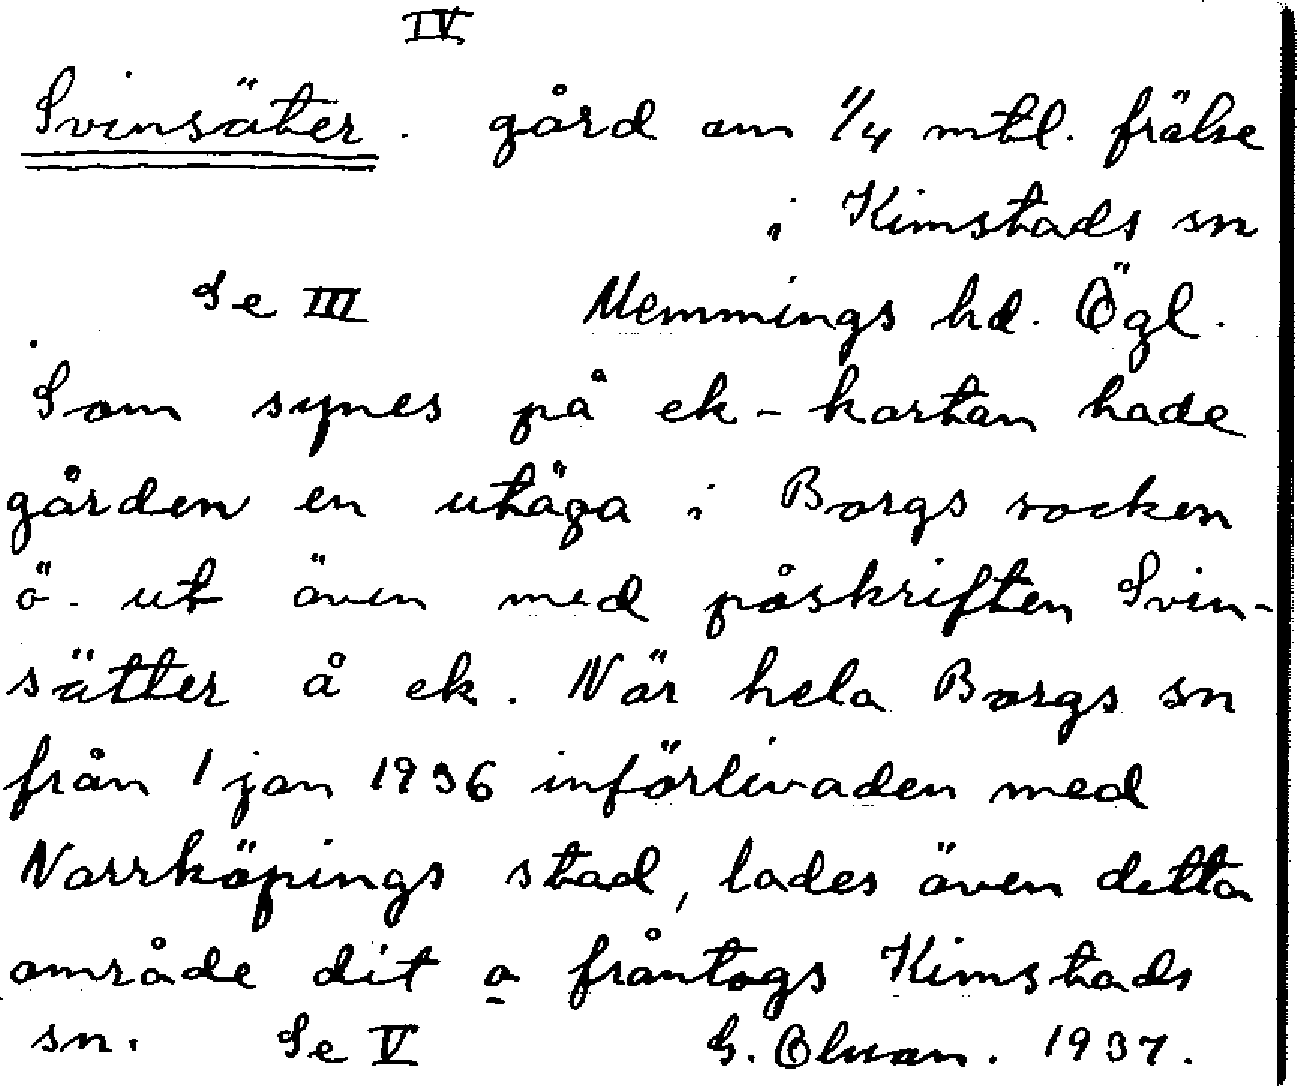 IV
Svinsäter. gård om 1/4 mtl. frälse
i Kimstads sn
Se III Memmings hd. Ögl.
Som synes på ek-kartan hade
gården en utäga i Borgs socken
ö. ut även med påskriften Svin-
sätter å ek. När hela Borgs sn
från 1 jan 1936 införlivaden med
Norrköpings stad, lades även detta
område dit o fråntogs Kimstads
sn. Se V G. Olsson. 1937.